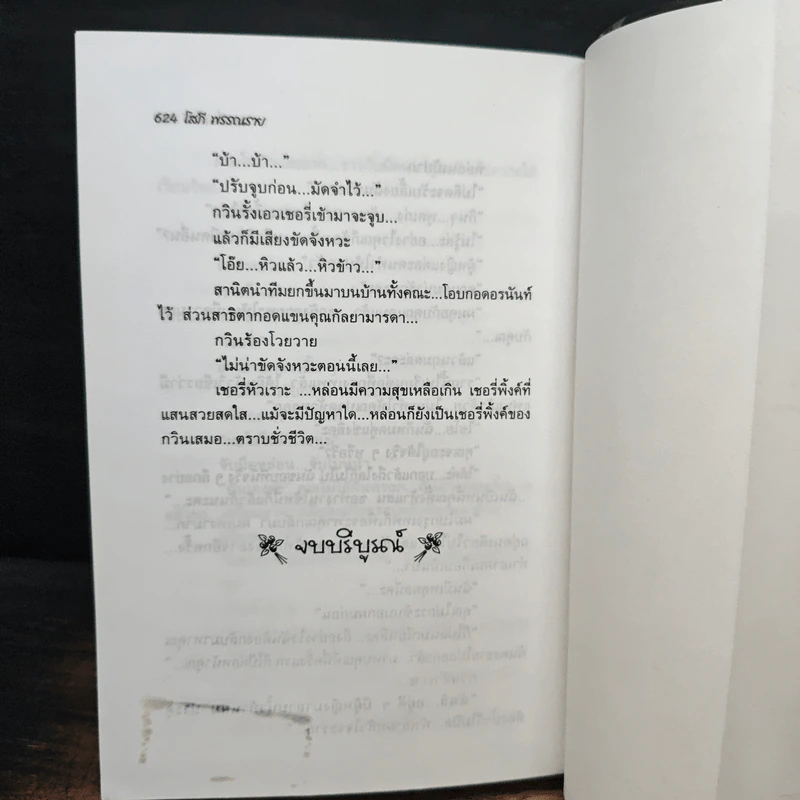 624 โสภี พรรณราย
“บ้า...บ้า...”
“ปรับจูบก่อน...มัดจำไว้...”
กวินรั้งเอวเชอรี่เข้ามาจะจูบ...
แล้วก็มีเสียงขัดจังหวะ
“โอ๊ย...หิวแล้ว...หิวข้าว...”
สานิตนำทีมยกขึ้นมาบนบ้านทั้งคณะ...โอบกอดอรนันท์
ไว้ ส่วนสาธิตากอดแขนคุณกัลยามารดา...
กวินร้องโวยวาย
“ไม่น่าขัดจังหวะตอนนี้เลย...”
เชอรี่หัวเราะ ...หล่อนมีความสุขเหลือเกิน เชอรี่พิ้งค์ที่
แสนสวยสดใส...แม้จะมีปัญหาใด...หล่อนก็ยังเป็นเชอรี่พิ้งค์ของ
กวินเสมอ...ตราบชั่วชีวิต...
จบบริบูรณ์